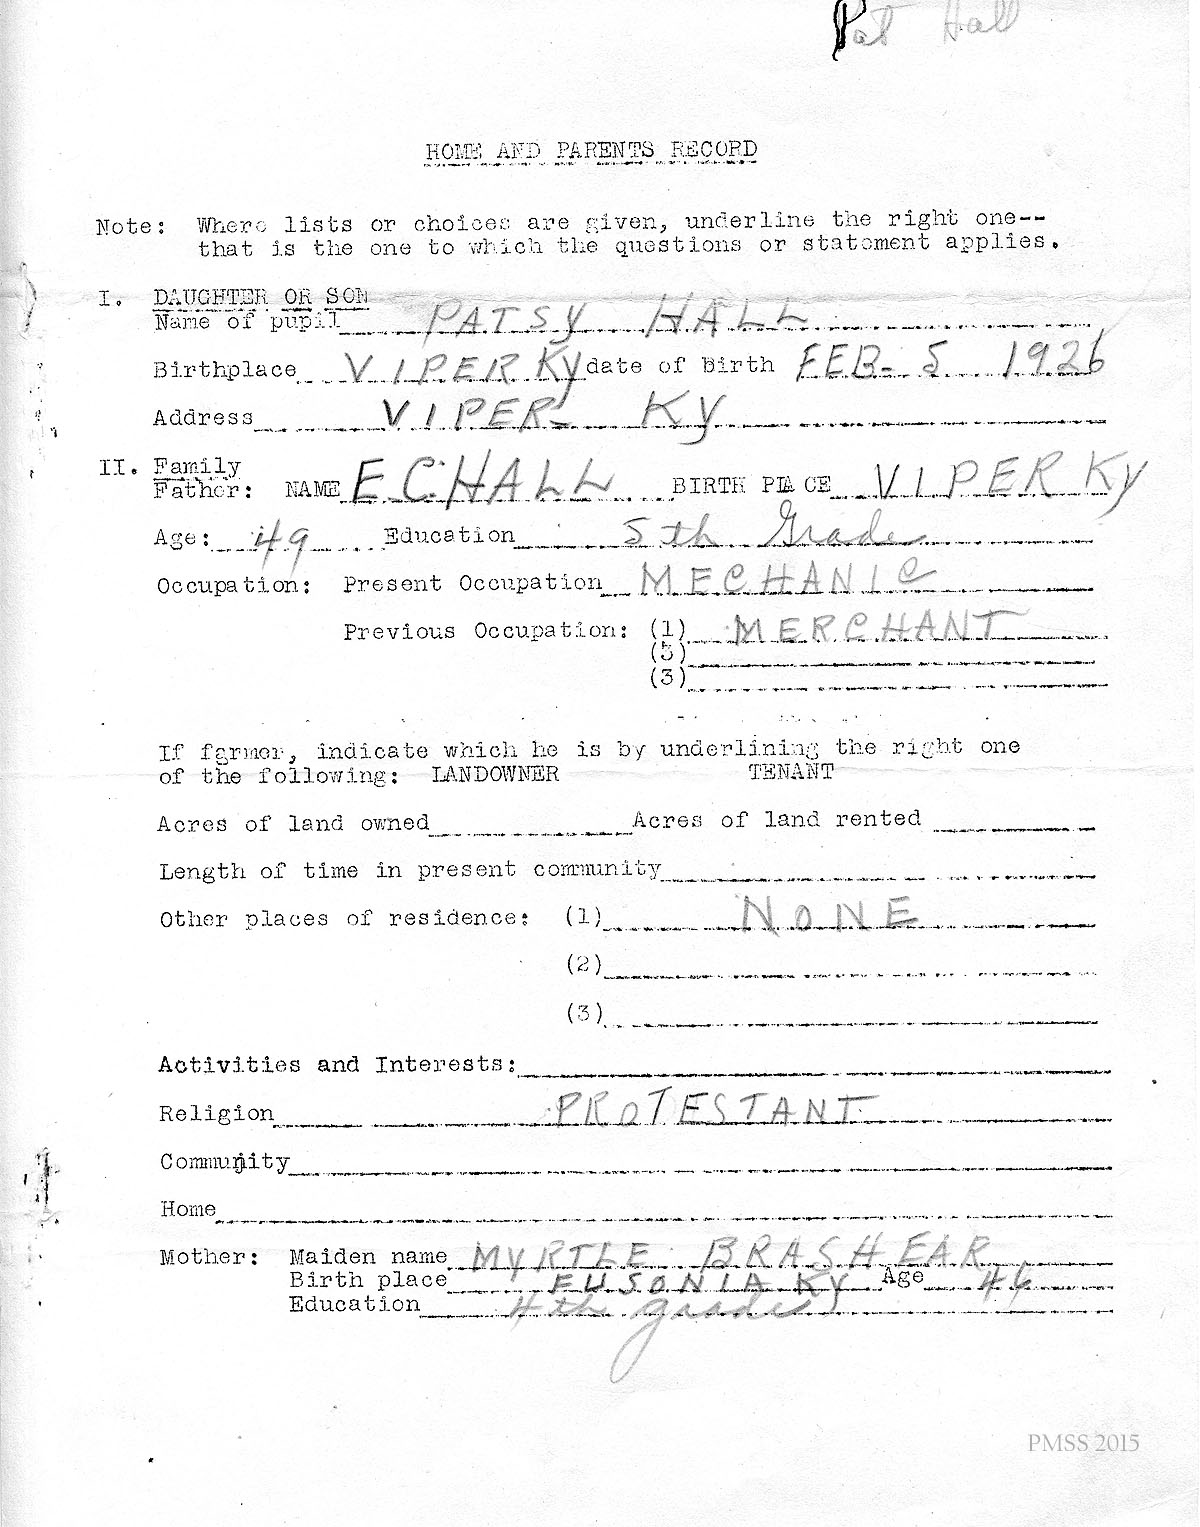 Pat Hall
HOME AND PARENTS RECORD
Note: Where lists or choices are given, underline the right one--
that is the one to which the questions or statement applies.
I. DAUGHTER OR SON
Name of pupil PATSY HALL
Birthplace VIPER KY date of Birth FEB. 5 1926
Address VIPER- KY
II. Family
Father: NAME E C. HALL BIRTH PLACE VIPER KY
Age: 49 Education 5th Grade
Occupation: Present Occupation MECHANIC
Previous Occupation: (1) MERCHANT
(3)
(3)
If farmer, indicate which he is by underlining the right one
of the following: LANDOWNER TENANT
Acres of land owned Acres of land rented
Length of time in present community
Other places of residence: (1) NONE
(2)
(3)
Activities and Interests:
Religion PROTESTANT
Community
Home
Mother: Maiden name MYRTLE BRASHEAR
Birth place EUSONIA KY Age 46
Education 4th grade
PMSS 2015